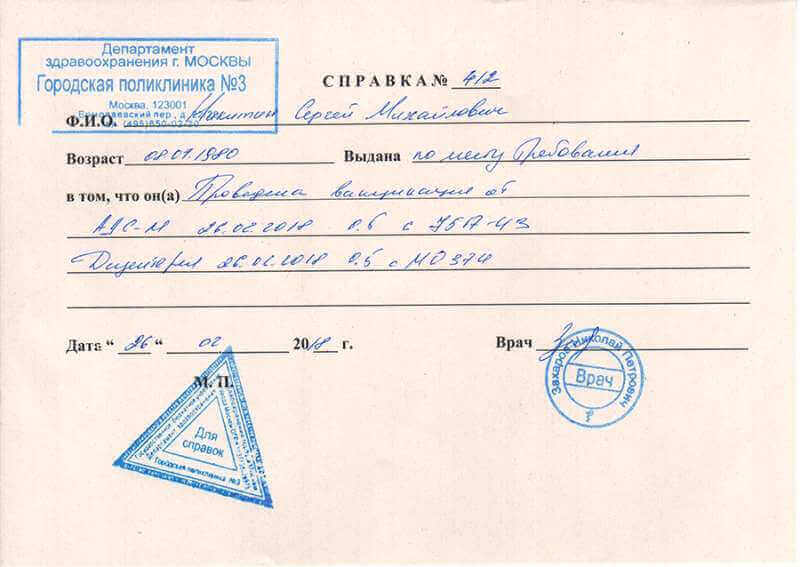 Департамент
здравоохранения г. МОСКВЫ
Городская поликлиника №3
Москва, 123001
Ермолаевский пер., д
СПРАВКА № 412
Ф.И.О. Никитин Сергей Михайлович
Возраст 08.07.1980 Выдана по месту Требования
в том, что он(а) Проведена вакцинация от
АДС-М 26.02.2018 0.5 с 75А-43
Дифтерия 26.02.2018 0.5 с МО374
Дата “ 26 “ 02 2018 г.
Врач
М. П.
Для
справок
Городская поликлиника №3
Захаров Николай Петрович
Врач